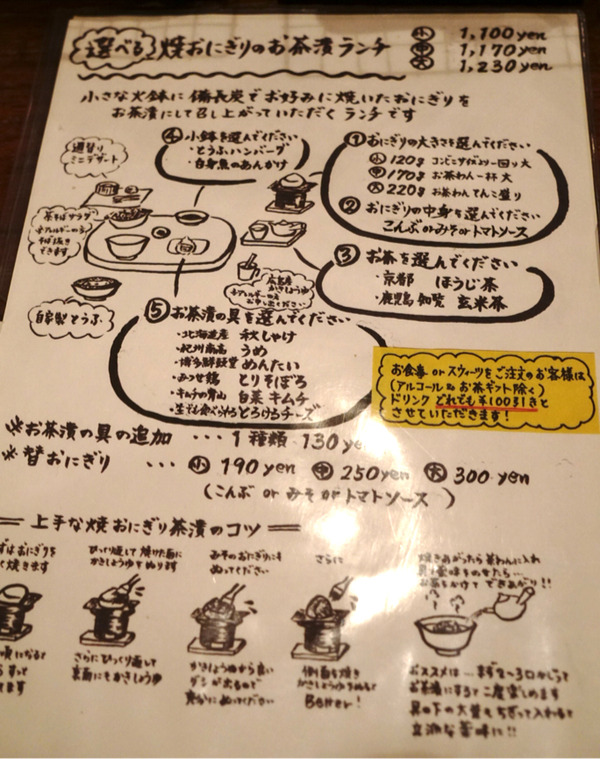 選べる 焼おにぎりのお茶漬ランチ
小 1,100 yen
中 1,170 yen
大 1,230 yen
小さな火鉢に備長炭でお好みに焼いたおにぎりを
お茶漬にして召し上がっていただくランチです
④小鉢を選んでください
・とうふハンバーグ
・白身魚のあんかけ
①おにぎりの大きさを選んでください
小 120g コンビニサイズより一回り大
中 170g お茶わん一杯大
大 220g お茶わんてんこ盛り
②おにぎりの中身を選んでください
こんぶ or みそ or トマトソース
③お茶を選んでください
・京都 ほうじ茶
・鹿児島知覧 玄米茶
週替り
ミニデザート
茶そばサラダ
そば抜き
できます
自家製とうふ
広島産
かきしょうゆ
⑤お茶漬の具を選んでください
・北海道産 秋しゃけ
・紀州南高 うめ
・博多鮮鼓堂 めんたい
・みつせ鶏 とりそぼろ
・キムチの青山 白菜キムチ
・生でも食べられる とろけるチーズ
お食事 or スウィーツをご注文のお客様は
(アルコール&お茶ギフト除く)
ドリンク どれでも¥100引きと
させていただきます!
※お茶漬の具の追加 ・・・ 1種類 130 yen
※替おにぎり ・・・ 小 190 yen 中 250 yen 大 300 yen
(こんぶ or みそ or トマトソース)
上手な焼おにぎり茶漬のコツ
ずはおにぎりを
く焼きます
ひっくり返して焼けた面に
かきしょうゆをぬります
さらにひっくり返して
裏面にもかきしょうゆ
みそのおにぎりにも
ぬってください
かきしょうゆから良い
ダシが出るので
充分にぬってください
さらに
側面も焼き
かきしょうゆぬると
Better!
焼きあがったら茶わんに入れ
具・薬味をのせたら…
お茶をかけて できあがり!!
おススメは…まず2〜3口かじって
お茶漬にすると二度楽しめます
具の下の大葉もちぎって入れると
立派な薬味に!!